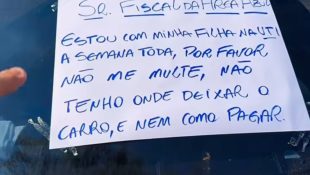 SR. FISCAL DA ÁREA AZUL
ESTOU COM MINHA FILHA NA UTI
A SEMANA TODA, POR FAVOR
NÃO ME MULTE, NÃO
TENHO ONDE DEIXAR O
CARRO, E NEM COMO PAGAR.